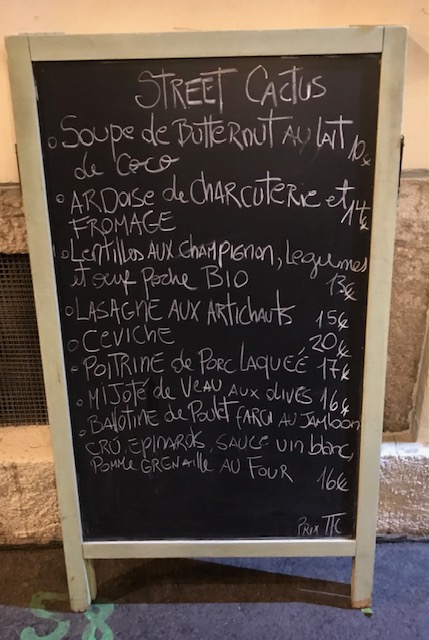 STREET CACTUS
Soupe de BUTTERNUT AU lait 10€
de COCO
ARDOISE de CHARCUTERIE et 14€
FROMAGE
Lentilles AUX CHAMPIGNON, Legumes
et oeuf Poche BIO 13€
LASAGNE AUX ARTICHAUTS 15€
CEVICHE 20€
POITRINE de PORC LAQUEÉ 17€
MIJOTÉ de VEAU AUX olives 16€
BALLOTINE de Poulet FARCI AU JAMBON
CRÛ, EPINARDS, SAUCE vin blanc,
POMME GRENAILLE AU FOUR 16€
PRIX TTC
58